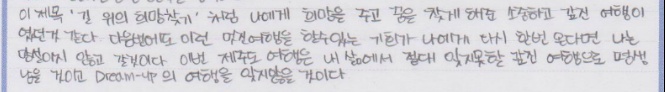 이 제목 '길 위의 희망찾기' 처럼 나에게 희망을 주고 꿈은 찾게 해준 소중하고 값진 여행이
었던것 같다. 다음번에도 이런 멋진여행을 할수있는 기회가 나에게 다시 한번 온다면 나는
망설이지 않고 갈것이다. 이번 제주도 여행은 내 삶에서 절대 잊지못할 값진 여행으로 평생
남을 것이고 Dream-up 의 여행을 잊지않을 것이다